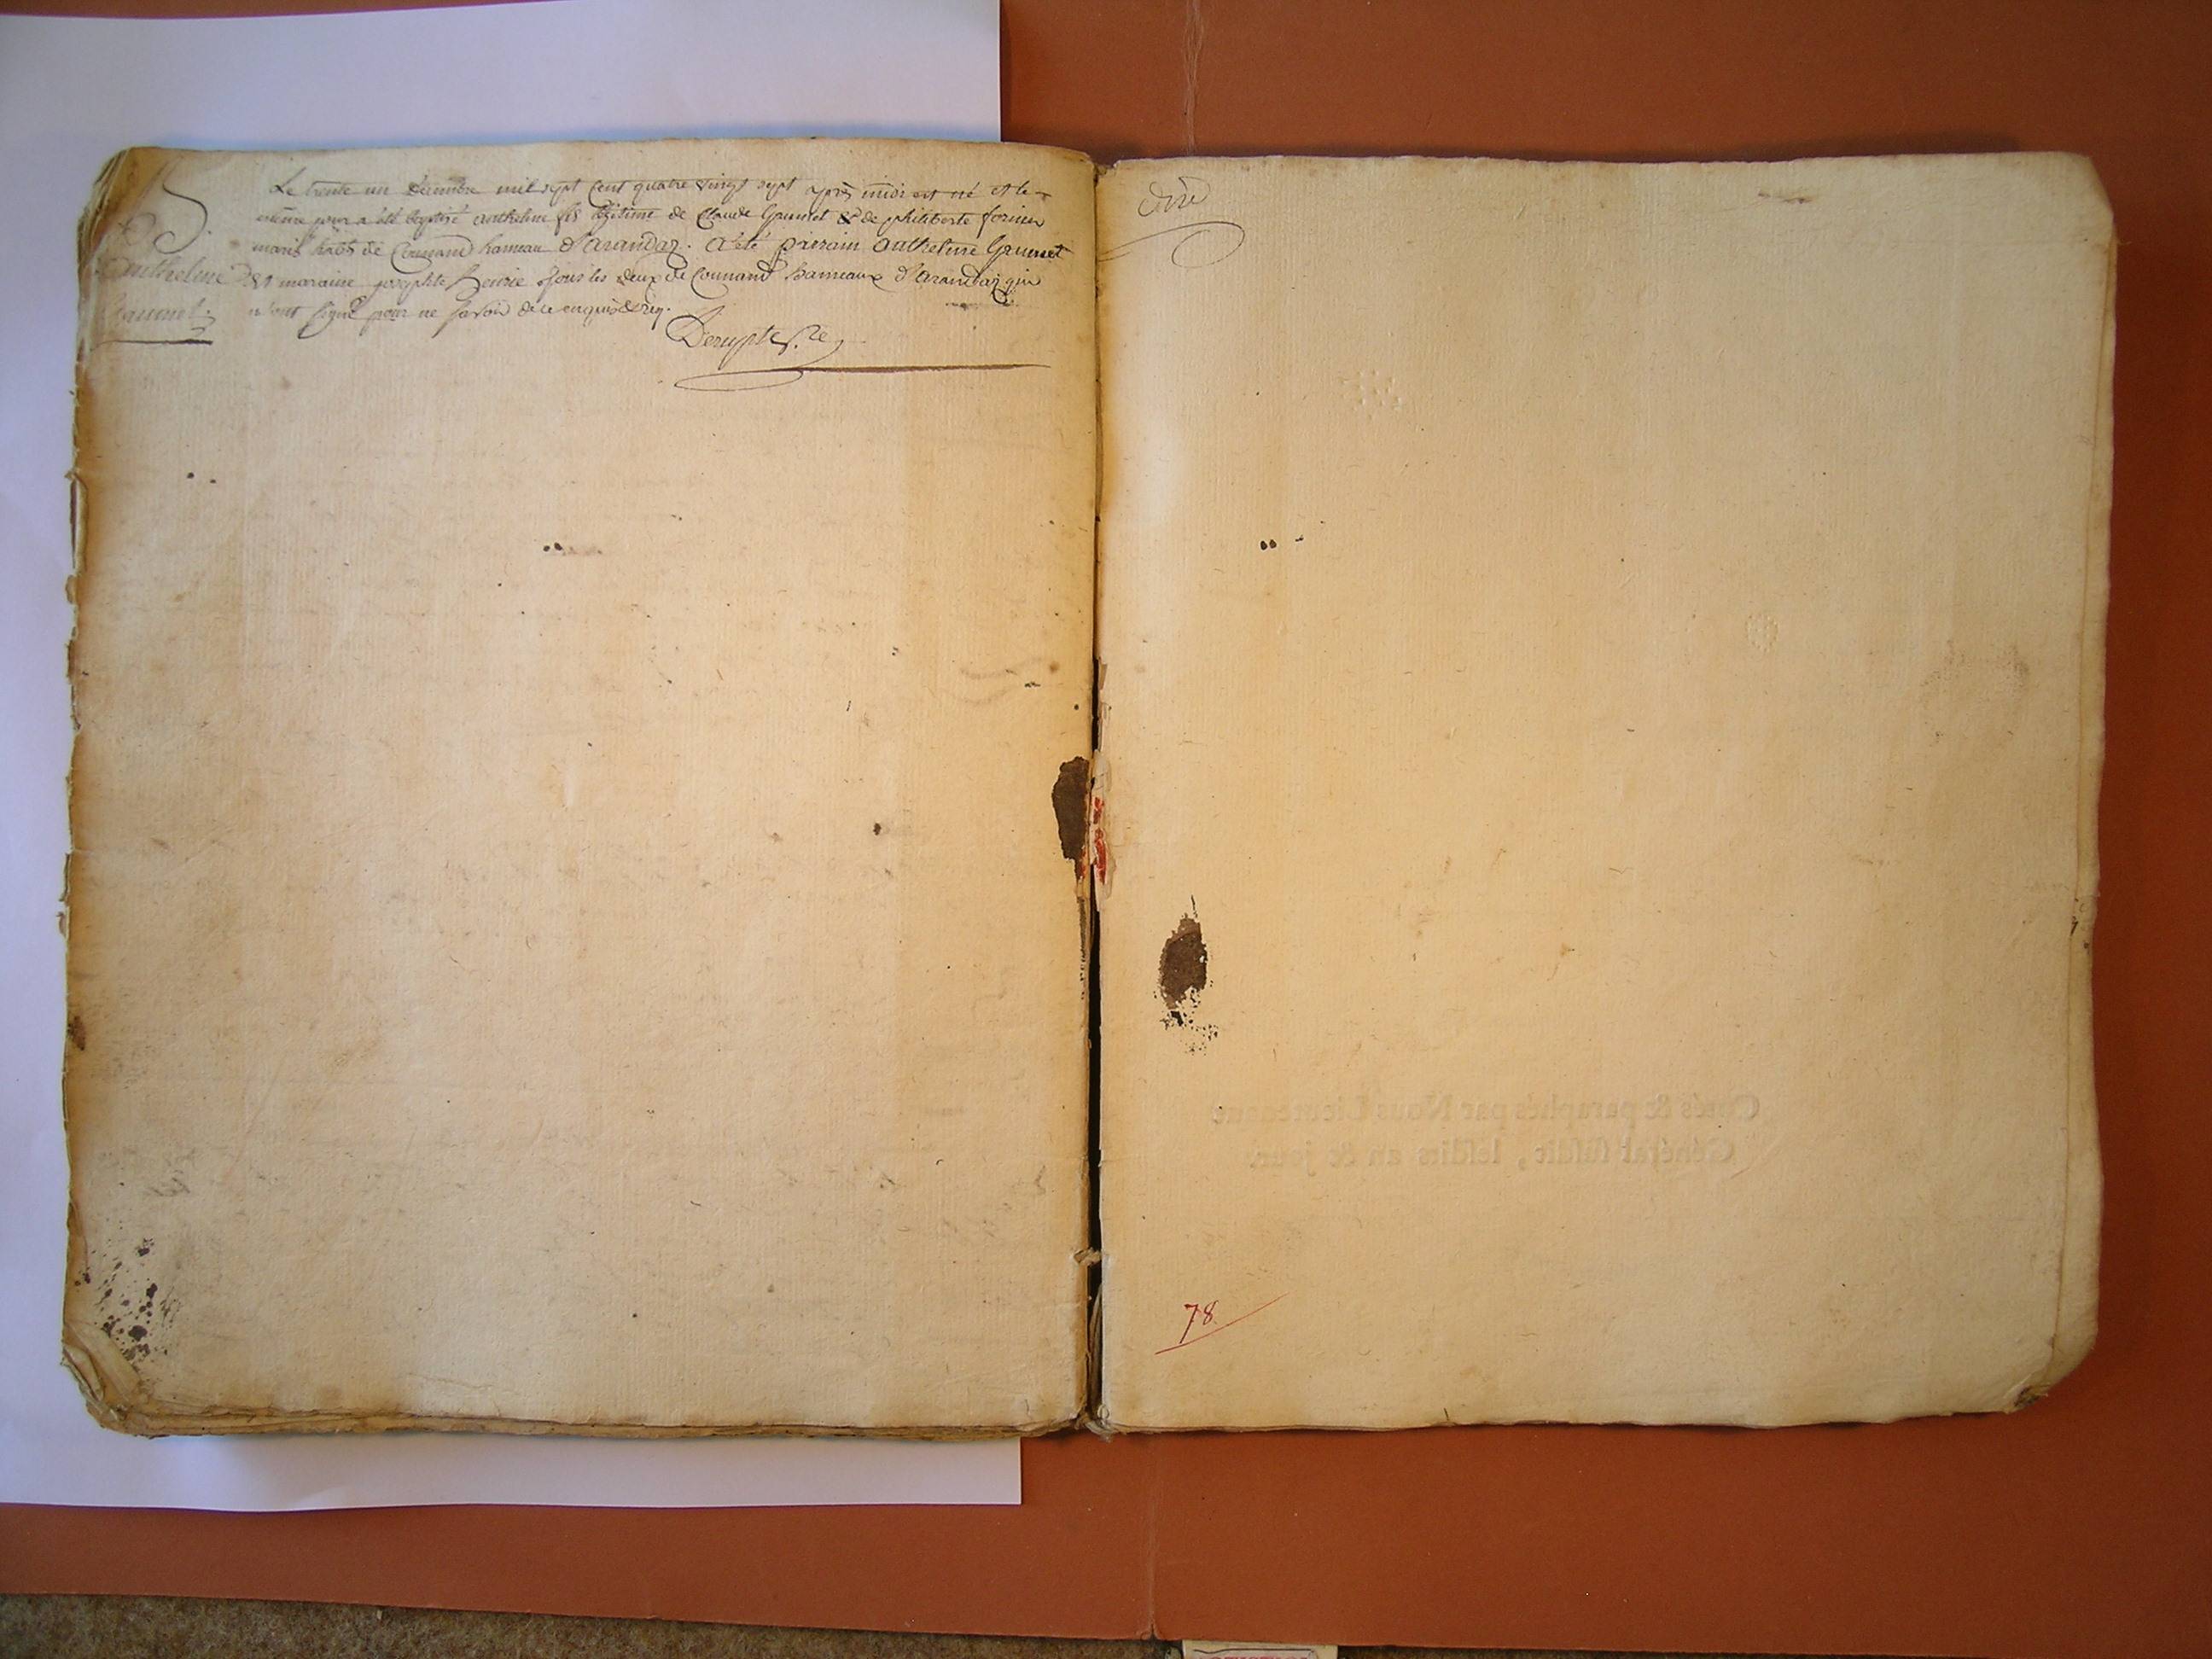 Le trente un décembre mil sept cent quatre vingt sept après midi est né et le
même jour a été baptisé anthelme fils légitime de Claude Grumet & de philiberte
mariés habts de Counand hameau d'arandaz. a été parrain anthelme Grumet
& maraine josephte tous les deux de Counand hameaux d'arandaz qui
n'ont signé pour ne savoir de ce enquis & req.
B
anthelme
Grumet
78
Cotés & paraphés par Nous Lieutenant
Général susdit, lesdits an & jour